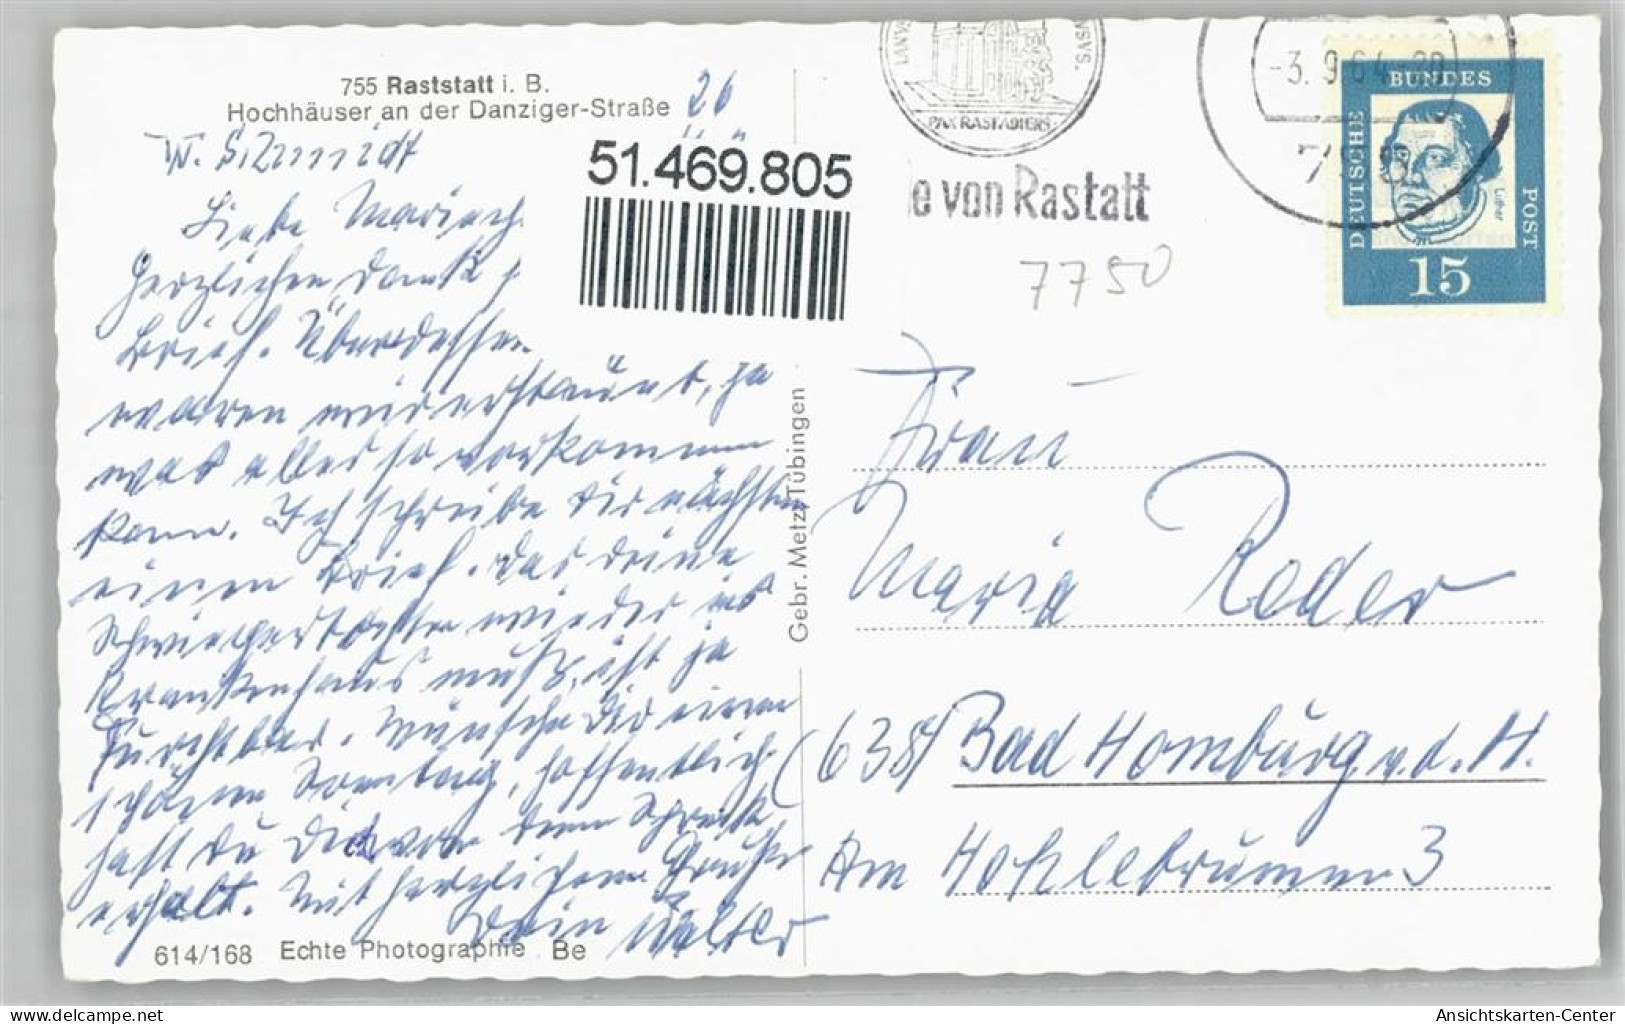 755 Raststatt i. B.
Hochhäuser an der Danziger-Straße 26
W. Schmidt
51.469.805
Liebe
Herzlichen Dank
Brief. Überdessen
waren wir erstaunt, ja
was alles so vorkommen
kann. Ich schreibe dir nächstens
einen Brief. Das deine
Schwiegertochter wieder ins
Krankenhaus muß, ist ja
furchtbar. Wünsche dir einen
schönen Sonntag, hoffentlich
hast du dich von dem Schreck
erholt. Mit herzlichen Grüßen
Dein Walter
614/168 Echte Photographie Be
Gebr. Metz, Tübingen
PAX RASTADIENS
e von Rastatt
-3. 9. 64 -20
DEUTSCHE BUNDES POST
Luther
15
7750
Frau
Maria Reder
638 Bad Homburg v. d. H.
Am Hohlebrunnen 3
Ansichtskarten-Center
www.delcampe.net/stores/Ansichtskarten-Center